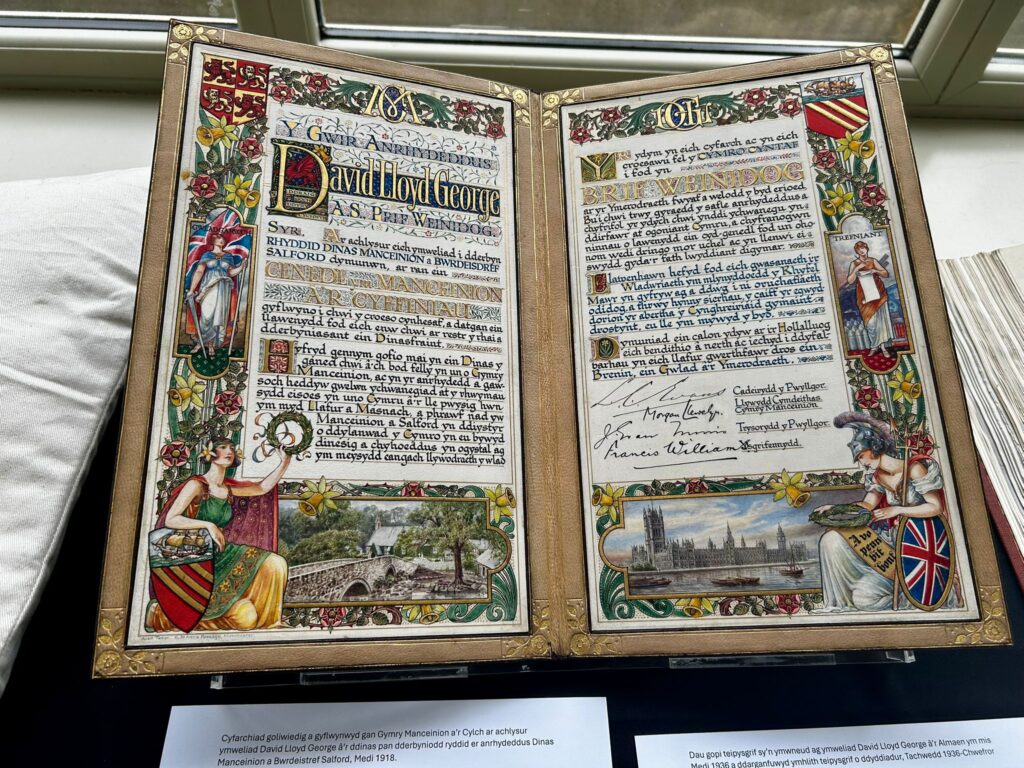 Y GWIR ANRHYDEDDUS
David Lloyd George
A.S. PRIF WEINIDOG.
SYR. Ar achlysur eich ymweliad i dderbyn
RHYDDID DINAS MANCEINION a BWRDEISDREF
SALFORD dymunwn, ar ran ein
CENEDL MANCEINION
A'R CYFFINIAU
gyflwyno i chwi y croeso cynhesaf, a datgan ein
llawenydd fod eich enw chwi ar restr y rhai a
dderbyniasant ein Dinasfraint.
Hyfryd gennym gofio mai yn ein Dinas y
ganed chwi a'ch bod felly yn un o Gymry
Manceinion, ac yn yr anrhydedd a gaw-
soch heddyw gwelwn ychwanegiad at y rhwymau
sydd eisoes yn uno Cymru a'r lle pwysig hwn
ym myd Llafur a Masnach, a phrawf nad yw
Manceinion a Salford yn ddistyr
o ddylanwad y Cymro yn eu bywyd
dinesig a chyhoeddus yn ogystal ag
ym meysydd eangach llywodraeth y wlad
Yr ydym yn eich cyfarch ac yn eich
croesawu fel y CYMRO CYNTAF
i fod yn
BRIF WEINIDOG
ar yr Ymerodraeth fwyaf a welodd y byd erioed
Bu i chwi trwy gyraedd y safle anrhydeddus a
chyfrifol yr ydych chwi ynddi ychwanegu yn
ddirfawr at ogoniant Cymru, a chyfranogwn
ninnau o lawenydd ein cyd-genedl fod un oho
nom wedi dringo mor uchel ac yn llenwi ei
swydd gyda'r fath lwyddiant digymar.
Llawenhawn hefyd fod eich gwasanaeth i'r
Wladwriaeth ym mlynyddoedd y Rhyfel
Mawr yn gyfryw ag a ddwg i ni oruchafiaeth
odidog, a thrwy rymus sicrhau, y caiff yr egwyd
dorion yr abertha y Cynghreiriaid gymaint
drostynt, eu lle ym mywyd y byd.
Dymuniad ein calon ydyw ar i'r Hollalluog
eich bendithio a nerth ac iechyd i ddyfal
barhau yn eich llafur gwerthfawr dros ein
Brenin, ein Gwlad a'r Ymerodraeth.
Cadeirydd y Pwyllgor.
Morgan Llewelyn. Llywydd Cymdeithas
Cymry Manceinion
Trysorydd y Pwyllgor.
Francis Williams Ysgrifennydd.
TREFNIANT
A vo
penn
bit
bont
Cyfarchiad goliwiedig a gyflwynwyd gan Gymry Manceinion a'r Cylch ar achlysur
ymweliad David Lloyd George â'r ddinas pan dderbyniodd ryddid er anrhydeddus Dinas
Manceinion a Bwrdeistref Salford, Medi 1918.
Dau gopi teipysgrif sy'n ymwneud ag ymweliad David Lloyd George â'r Almaen ym mis
Medi 1936 a ddarganfuwyd ymhlith teipysgrif o ddyddiadur, Tachwedd 1936-Chwefror